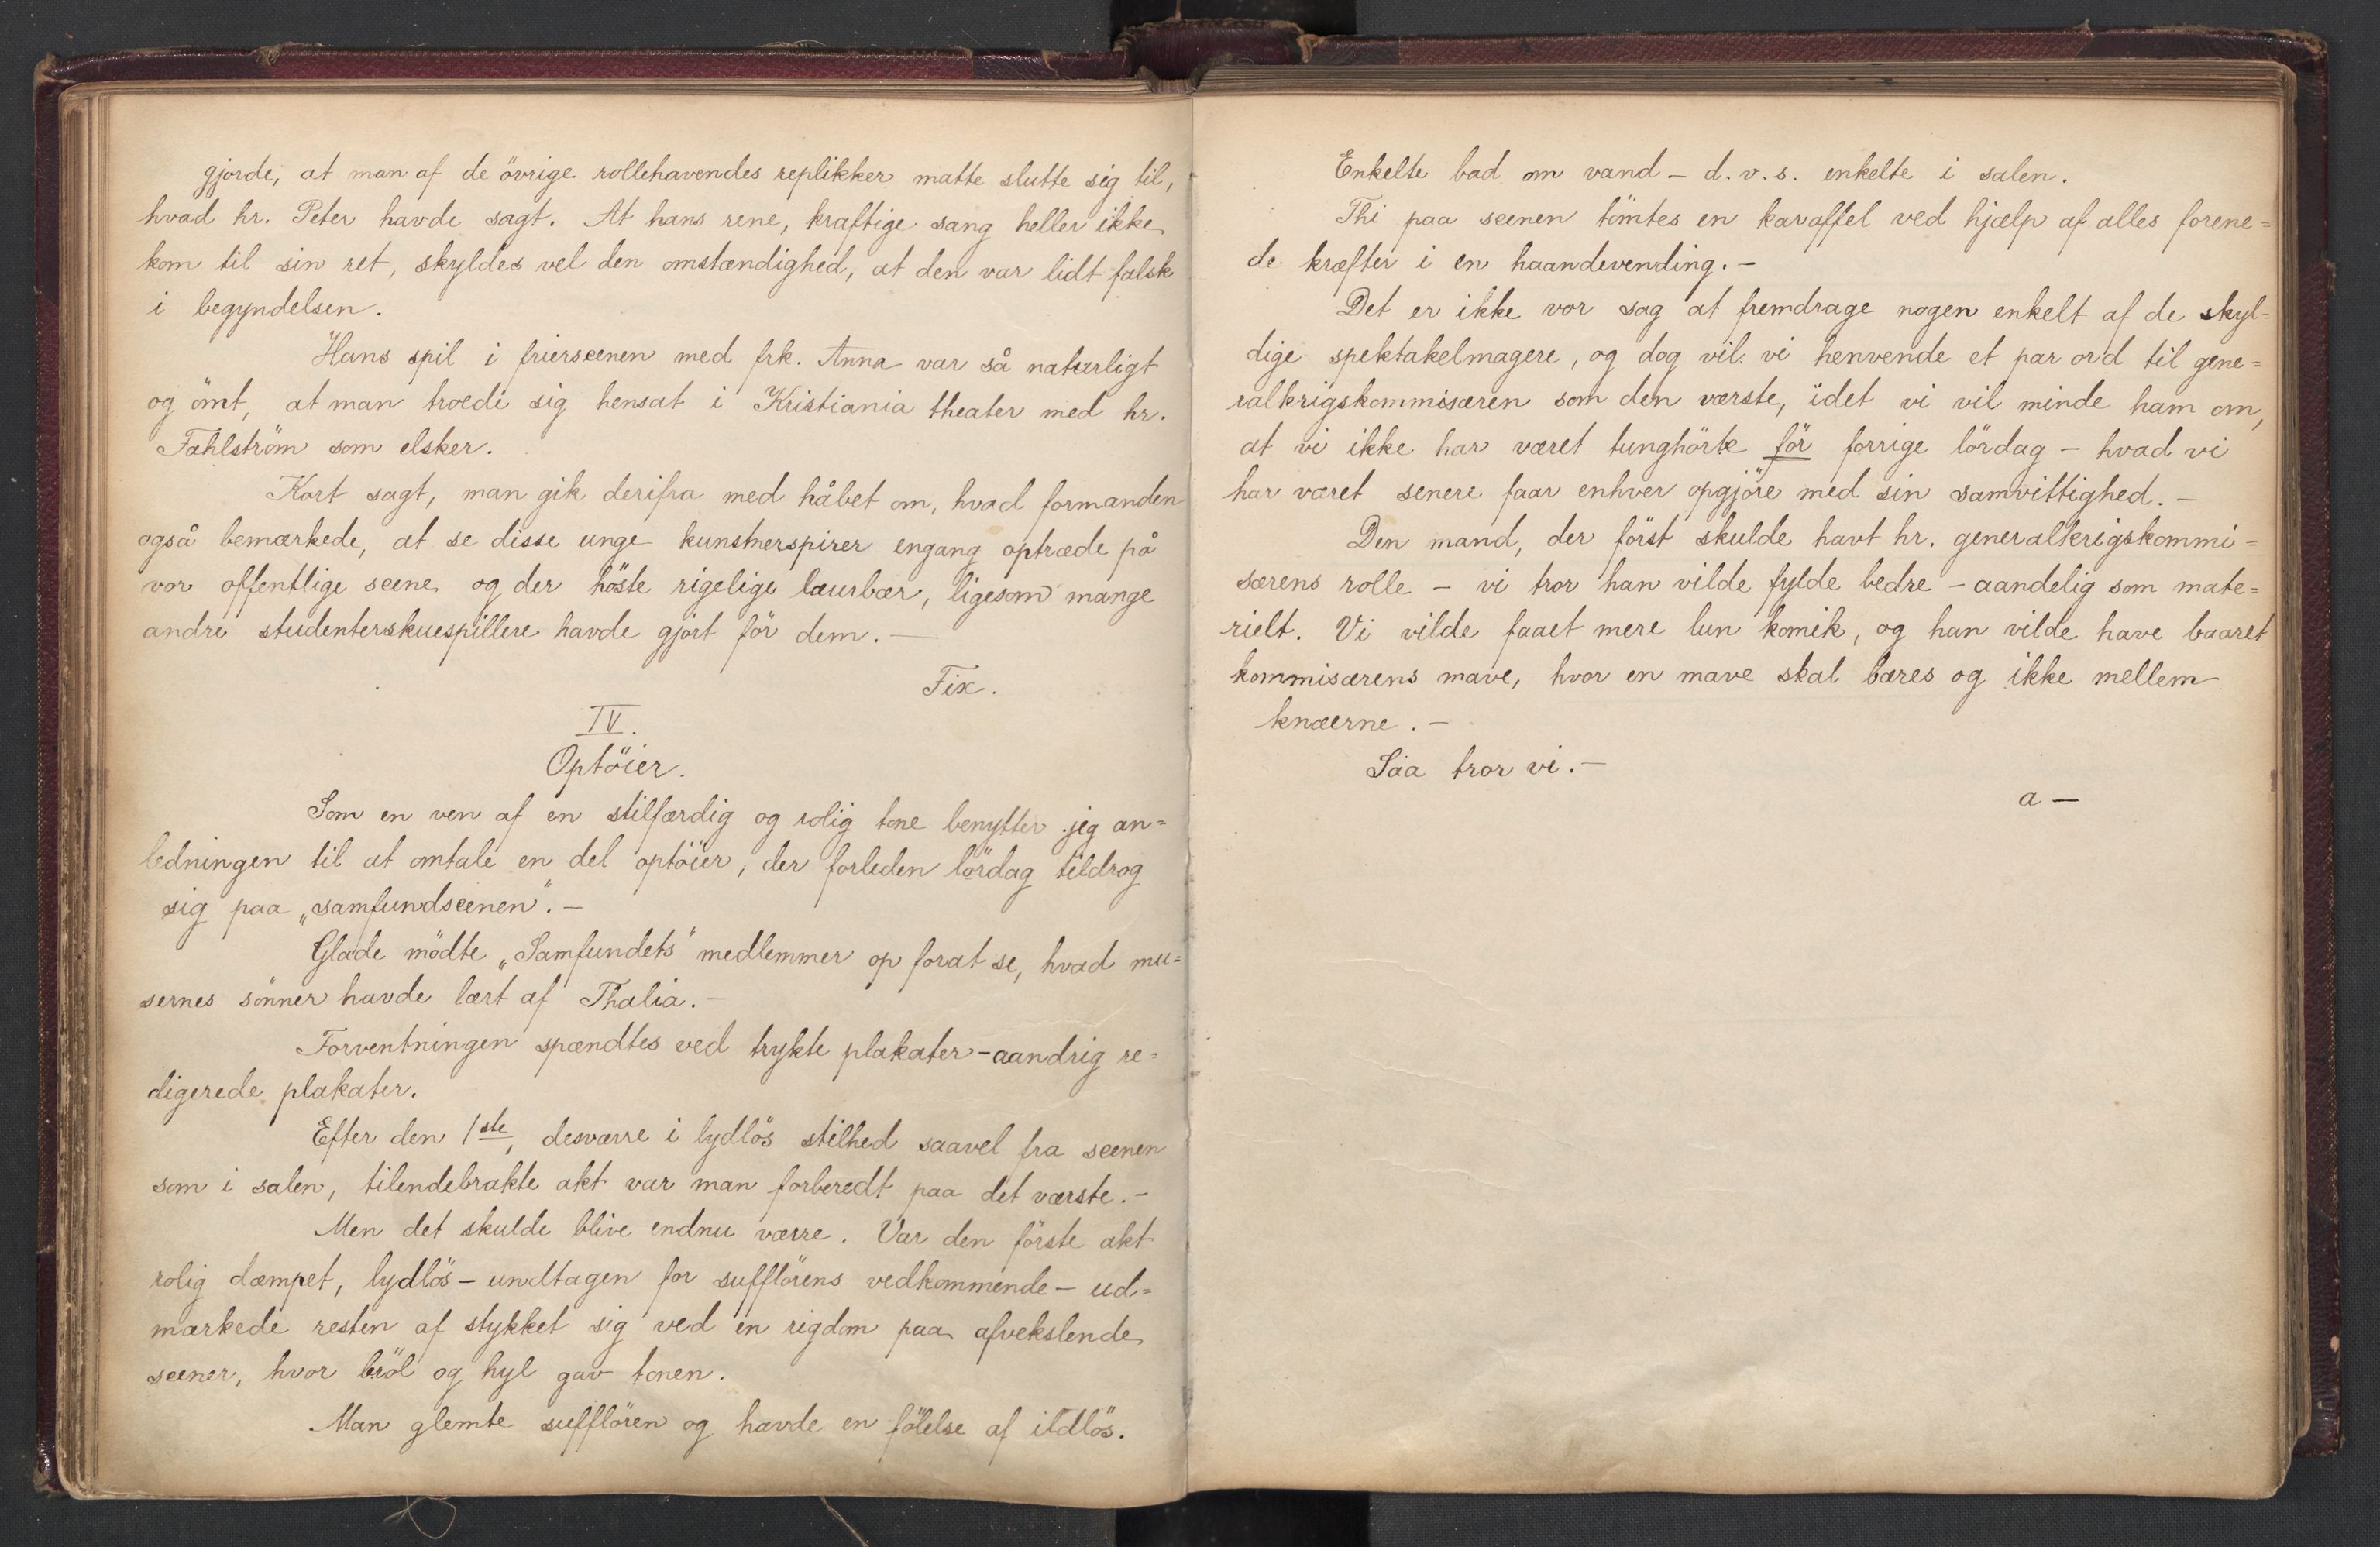 gjorde, at man af de övrige rollehavendes replikker matte slutte sig til,
hvad hr. Peter havde sagt. At hans rene, kraftige sang heller ikke
kom til sin ret, skyldes vel den omstændighed, at den var lidt falsk
i begyndelsen.
Hans spil i frierscenen med frk. Anna var så naturligt
og ömt, at man troede sig hensat i Kristiania theater med hr.
Fahlström som elsker.
Kort sagt, man gik derifra med håbet om, hvad formanden
også bemærkede, at se disse unge kunstnerspirer engang optræde på
vor offentlige scene og der höste rigelige laurbær, ligesom mange
andre studenterskuespillere havde gjort för dem. —
Fix.
IV.
Optöier.
Som en ven af en stilfærdig og rolig tone benytter jeg an=
ledningen til at omtale en del optöier, der forleden lördag tildrog
sig paa „samfundscenen". —
Glade mödte „Samfundets" medlemmer op forat se, hvad mu=
sernes sönner havde lært af Thalia. —
Forventningen spændtes ved trykte plakater – aandrig re=
digerede plakater.
Efter den 1ste, desværre i lydlös stilhed saavel fra scenen
som i salen, tilendebrakte akt var man forberedt paa det værste. —
Men det skulde blive endnu værre. Var den förste akt
rolig dæmpet, lydlös – undtagen for sufflörens vedkommende – ud=
mærkede resten af stykket sig ved en rigdom paa afvekslende
scener, hvor bröl og hyl gav tonen.
Man glemte sufflören og havde en fölelse af ildlös.
Enkelte bad om vand – d. v. s. enkelte i salen.
Thi paa scenen tömtes en karaffel ved hjælp af alles forene=
de kræfter i en haandevending. —
Det er ikke vor sag at fremdrage nogen enkelt af de skyl=
dige spektakelmagere, og dog vil vi henvende et par ord til gene=
ralkrigskommisæren som den værste, idet vi vil minde ham om,
at vi ikke har været tunghörte för forrige lördag – hvad vi
har været senere faar enhver opgjöre med sin samvittighed. —
Den mand, der först skulde havt hr. generalkrigskommi=
særens rolle – vi tror han vilde fylde bedre – aandelig som mate=
rielt. Vi vilde faaet mere lun komik, og han vilde have baaret
kommisærens mave, hvor en mave skal bæres og ikke mellem
knæerne. —
Saa tror vi. —
a —